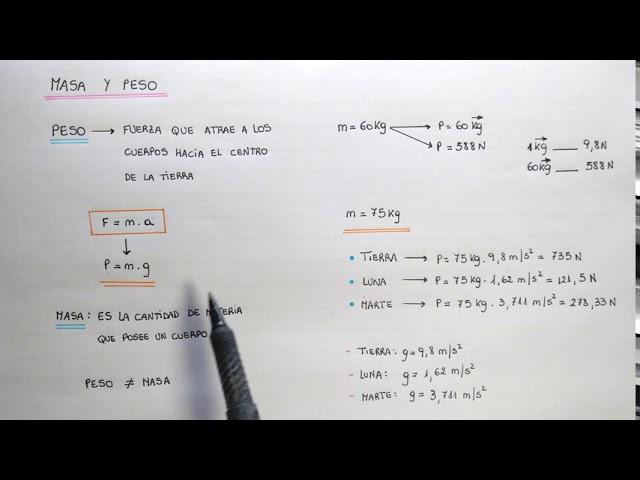 MASA Y PESO
PESO → FUERZA QUE ATRAE A LOS
CUERPOS HACIA EL CENTRO
DE LA TIERRA
F = m . a
↓
P = m . g
MASA : ES LA CANTIDAD DE
QUE POSEE UN CUERPO
PESO ≠ MASA
m = 60 kg → P = 60 k⃗g
→ P = 588 N
1 k⃗g ___ 9,8 N
60 k⃗g ___ 588 N
m = 75 kg
• TIERRA → P = 75 kg . 9,8 m/s² = 735 N
• LUNA → P = 75 kg . 1,62 m/s² = 121,5 N
• MARTE → P = 75 kg . 3,711 m/s² = 278,33 N
- TIERRA : g = 9,8 m/s²
- LUNA : g = 1,62 m/s²
- MARTE : g = 3,711 m/s²